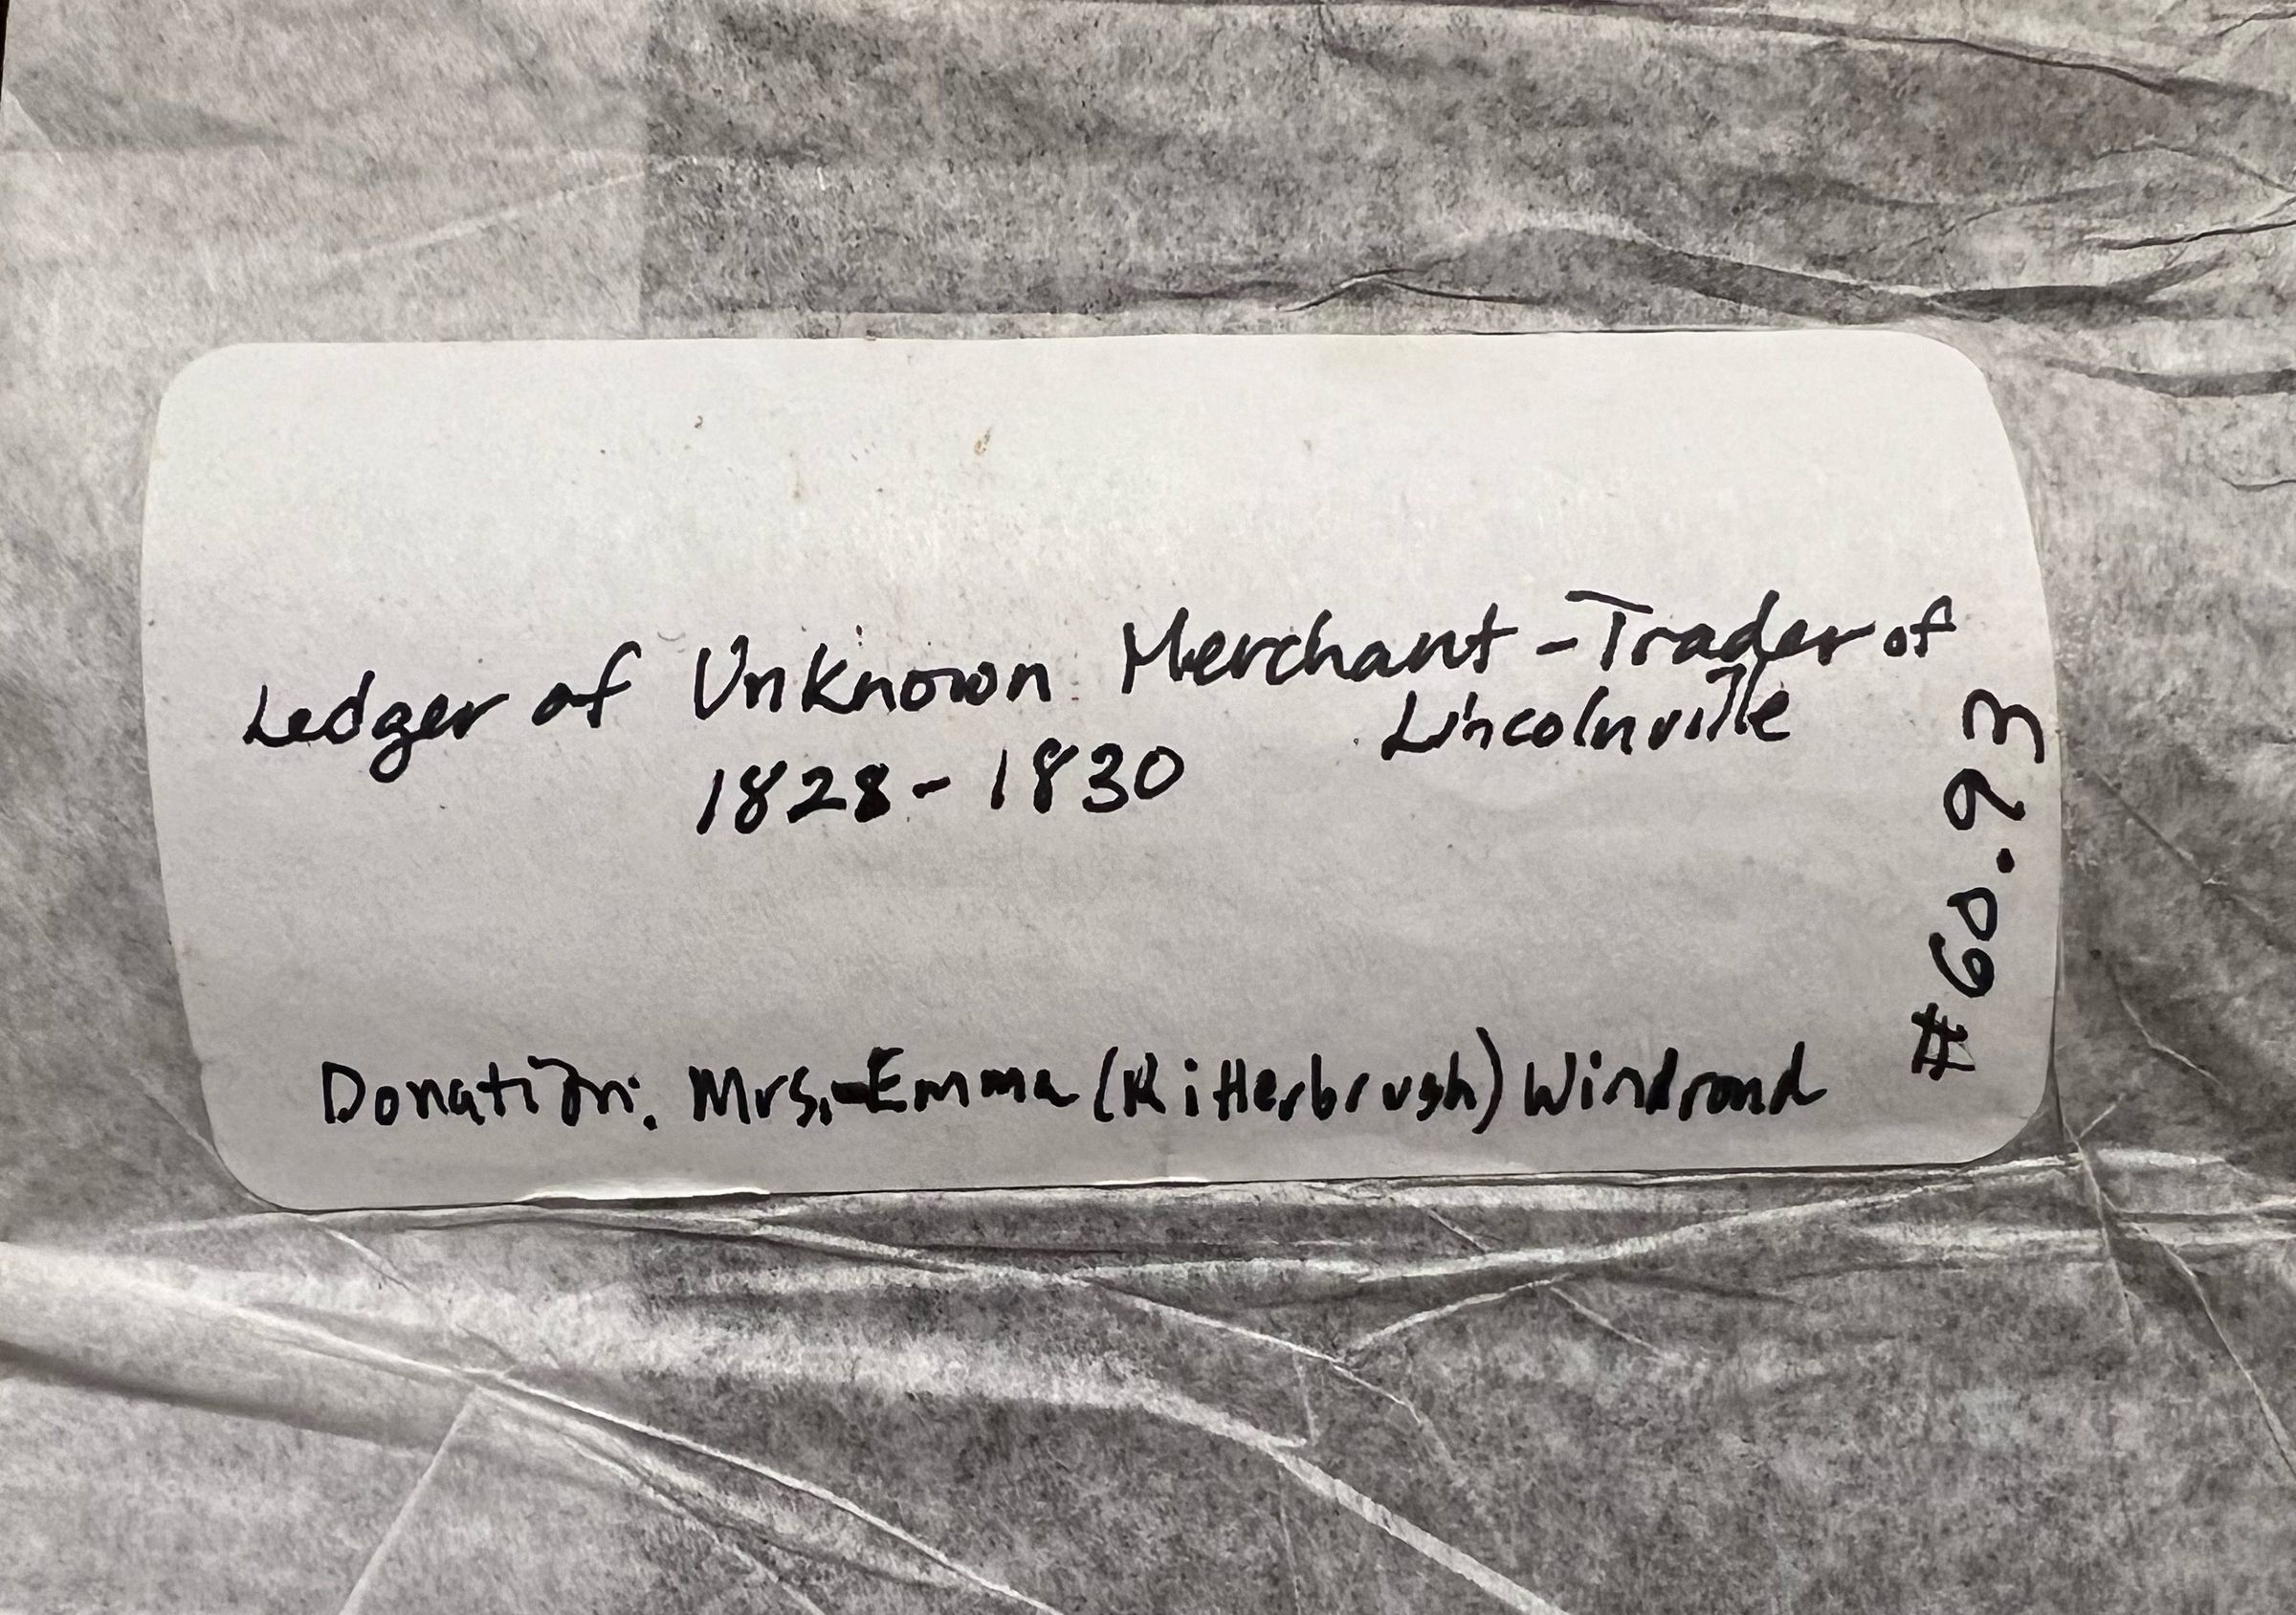 Ledger of Unknown Merchant-Trader of
Lincolnville
1828-1830
#60.93
Donation: Mrs. Emma (Kitterbrush) Windrond